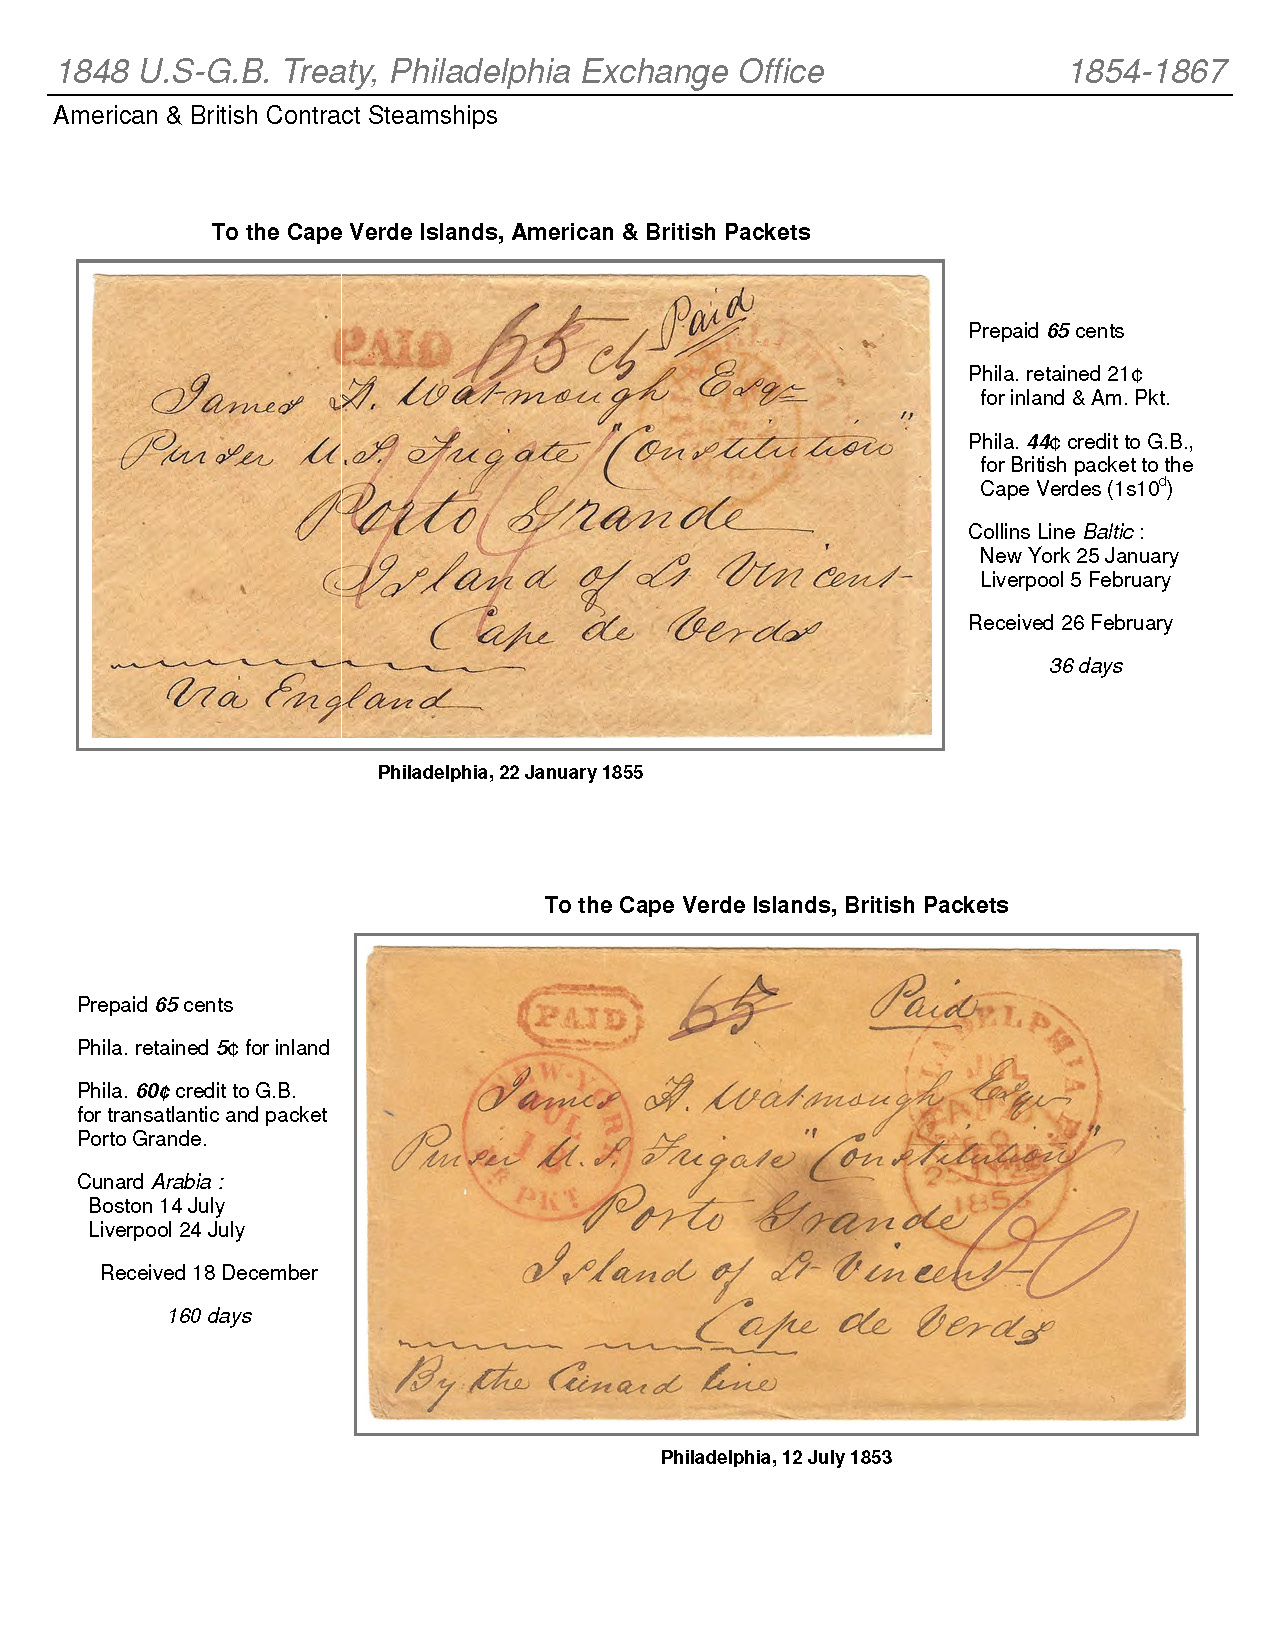 1848 U.S-G.B. Treaty, Philadelphia Exchange Office 1854-1867
American & British Contract Steamships
To the Cape Verde Islands, American & British Packets
PAID 65 cts Paid
James H. Watmough Esqr
Purser U.S. Frigate "Constitution"
Porto Grande
Island of St Vincent
Cape de Verds
Via England
44
Prepaid 65 cents
Phila. retained 21¢
for inland & Am. Pkt.
Phila. 44¢ credit to G.B.,
for British packet to the
Cape Verdes (1s10d)
Collins Line Baltic :
New York 25 January
Liverpool 5 February
Received 26 February
36 days
Philadelphia, 22 January 1855
To the Cape Verde Islands, British Packets
Prepaid 65 cents
Phila. retained 5¢ for inland
Phila. 60¢ credit to G.B.
for transatlantic and packet
Porto Grande.
Cunard Arabia :
Boston 14 July
Liverpool 24 July
Received 18 December
160 days
PAID 65 Paid
NEW-YORK
JUL
BR PKT
PHILADELPHIA
JUL
1853
James H. Watmough Esqr
Purser U.S. Frigate "Constitution"
Porto Grande
60
Island of St Vincent
Cape de Verds
By the Cunard line
Philadelphia, 12 July 1853